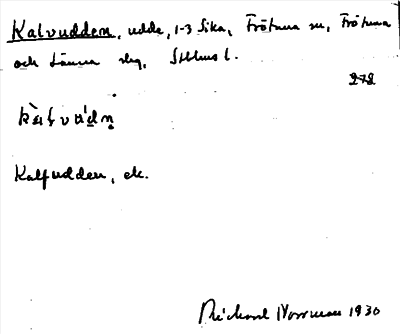 Kalvudden, udde, 1-3 Sika, Frötuna sn, Frötuna
och Länna skg, Sthlms l.
272
Kalfudden, ek.
Richard Norrman 1930